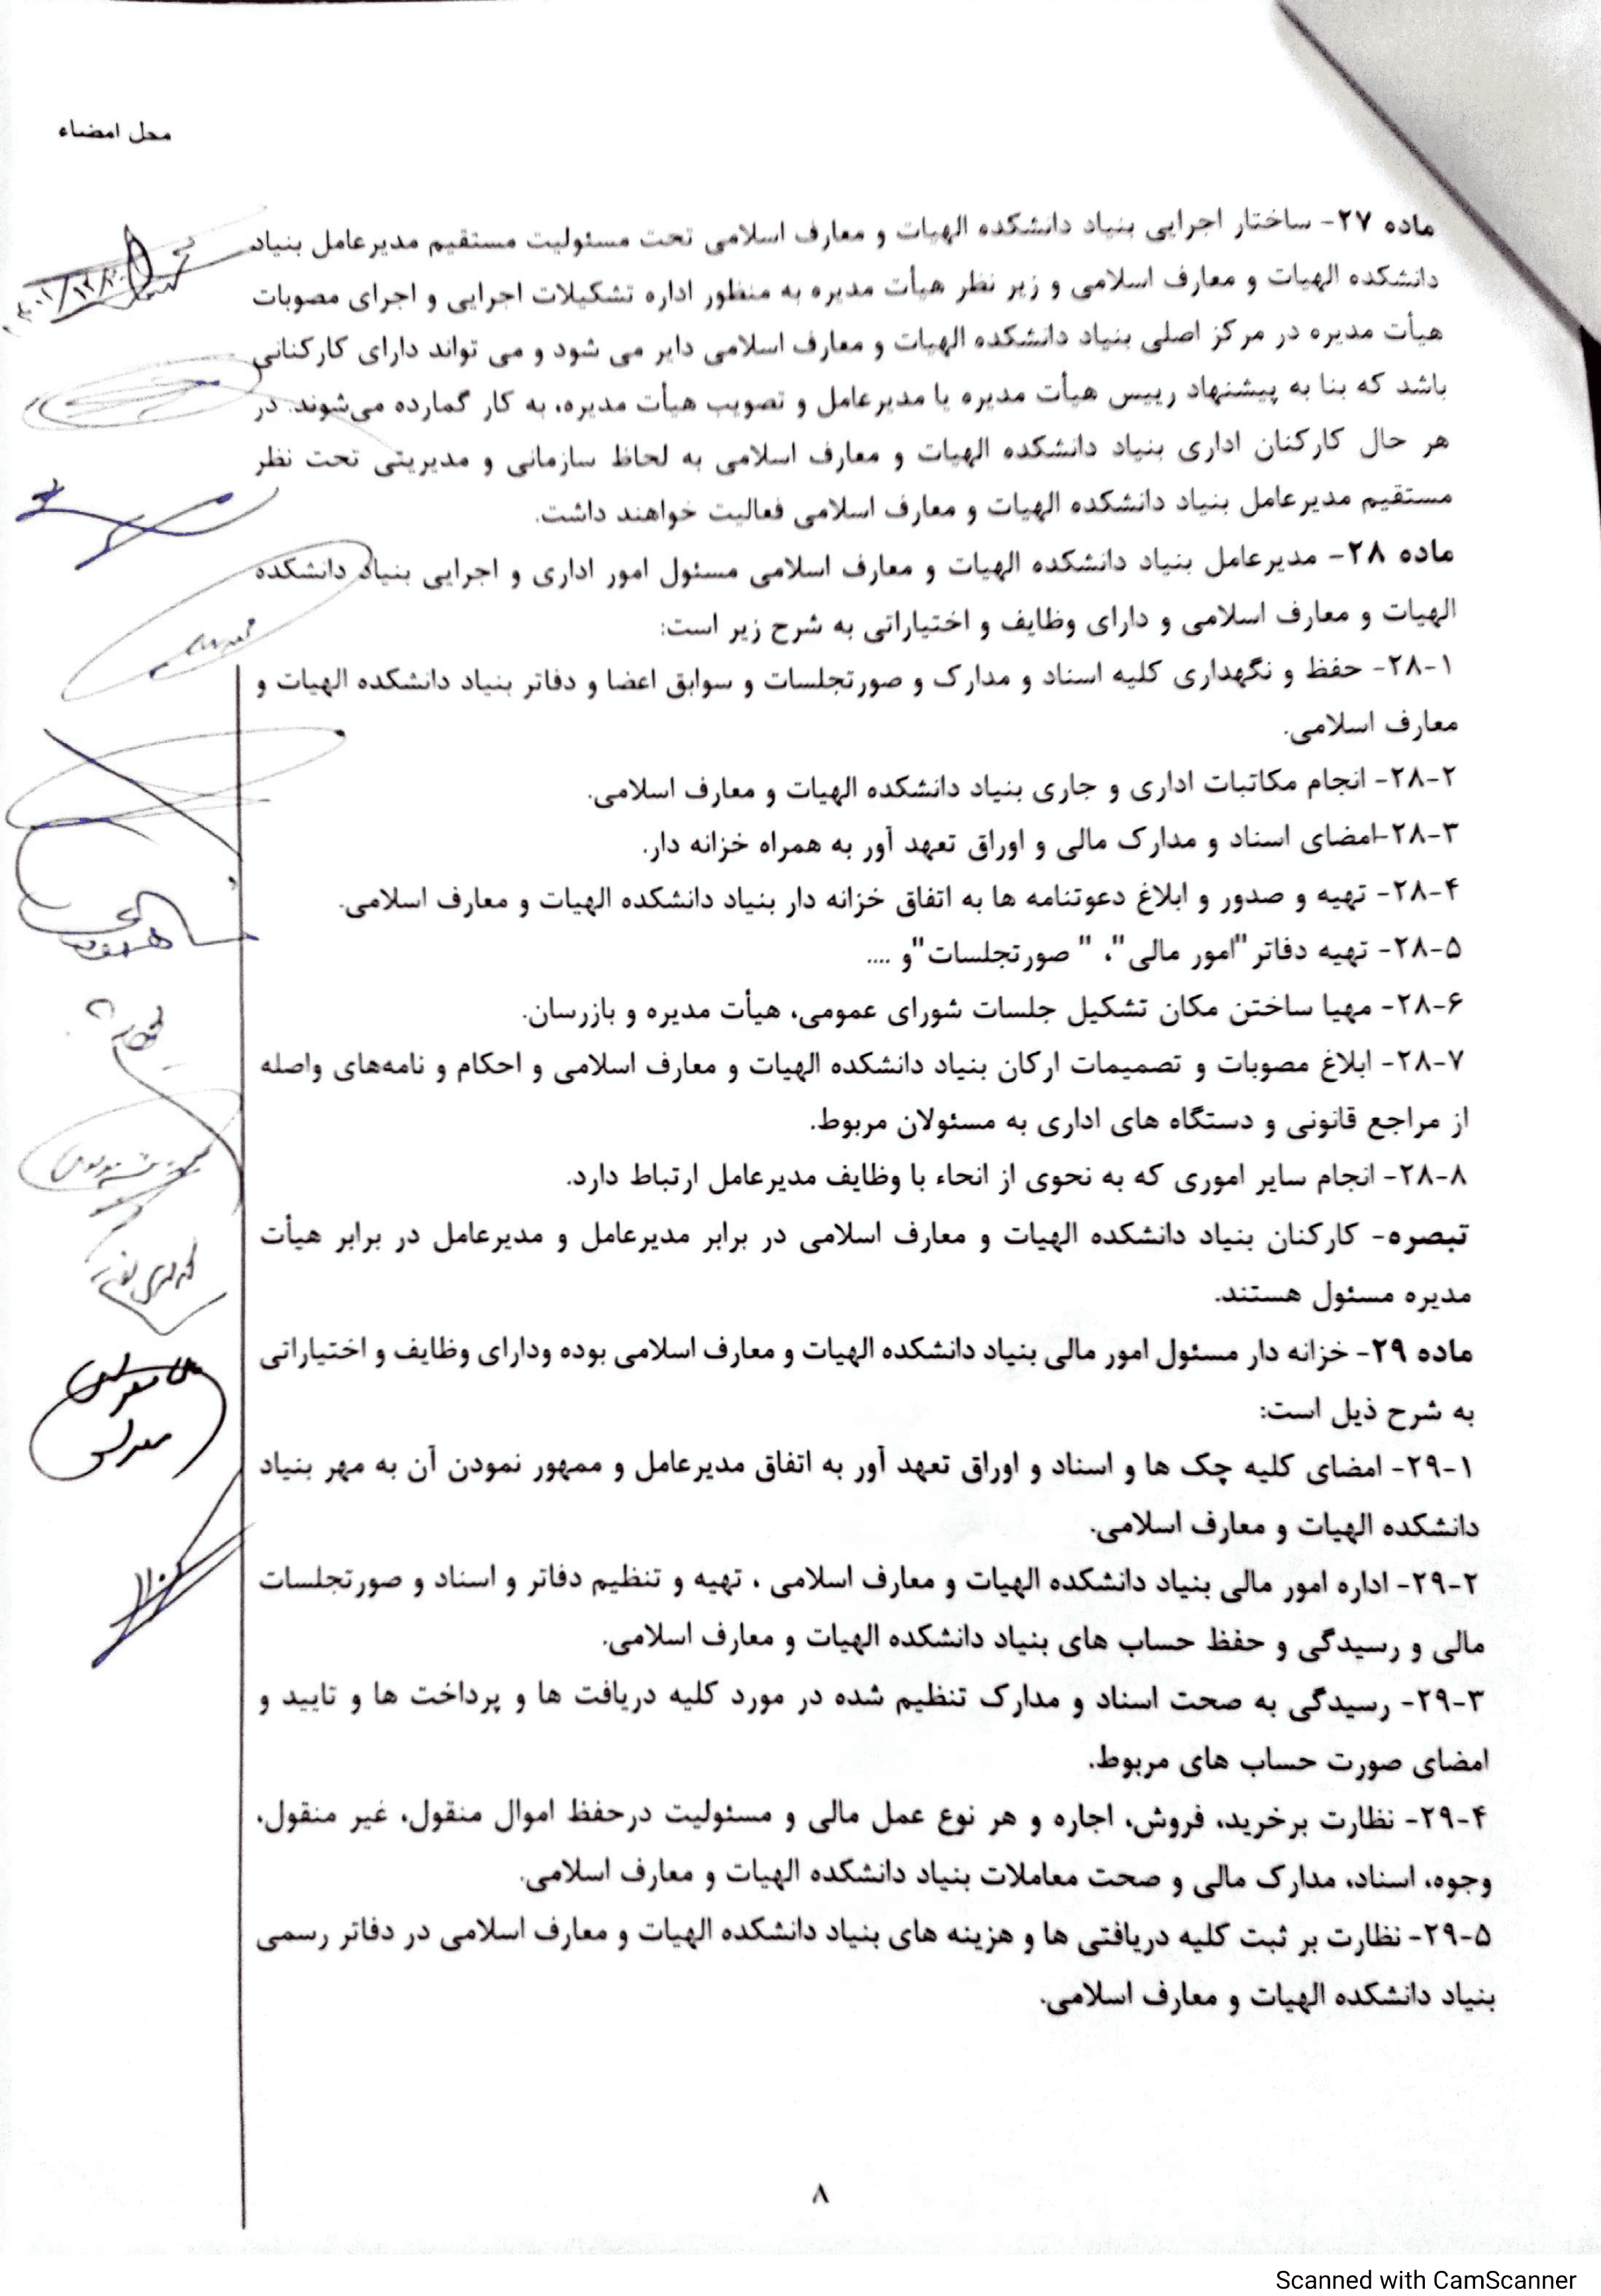 محل امضاء
ماده ۲۷- ساختار اجرایی بنیاد دانشکده الهیات و معارف اسلامی تحت مسئولیت مستقیم مدیرعامل بنیاد
دانشکده الهیات و معارف اسلامی و زیر نظر هیأت مدیره به منظور اداره تشکیلات اجرایی و اجرای مصوبات
هیأت مدیره در مرکز اصلی بنیاد دانشکده الهیات و معارف اسلامی دایر می شود و می تواند دارای کارکنانی
باشد که بنا به پیشنهاد رییس هیأت مدیره یا مدیرعامل و تصویب هیأت مدیره، به کار گمارده می‌شوند. در
هر حال کارکنان اداری بنیاد دانشکده الهیات و معارف اسلامی به لحاظ سازمانی و مدیریتی تحت نظر
مستقیم مدیرعامل بنیاد دانشکده الهیات و معارف اسلامی فعالیت خواهند داشت.
ماده ۲۸- مدیرعامل بنیاد دانشکده الهیات و معارف اسلامی مسئول امور اداری و اجرایی بنیاد دانشکده
الهیات و معارف اسلامی و دارای وظایف و اختیاراتی به شرح زیر است:
۲۸-۱- حفظ و نگهداری کلیه اسناد و مدارک و صورتجلسات و سوابق اعضا و دفاتر بنیاد دانشکده الهیات و
معارف اسلامی.
۲۸-۲- انجام مکاتبات اداری و جاری بنیاد دانشکده الهیات و معارف اسلامی.
۲۸-۳-امضای اسناد و مدارک مالی و اوراق تعهد آور به همراه خزانه دار.
۲۸-۴- تهیه و صدور و ابلاغ دعوتنامه ها به اتفاق خزانه دار بنیاد دانشکده الهیات و معارف اسلامی.
۲۸-۵- تهیه دفاتر"امور مالی"، " صورتجلسات"و ....
۲۸-۶- مهیا ساختن مکان تشکیل جلسات شورای عمومی، هیأت مدیره و بازرسان.
۲۸-۷- ابلاغ مصوبات و تصمیمات ارکان بنیاد دانشکده الهیات و معارف اسلامی و احکام و نامه‌های واصله
از مراجع قانونی و دستگاه های اداری به مسئولان مربوط.
۲۸-۸- انجام سایر اموری که به نحوی از انحاء با وظایف مدیرعامل ارتباط دارد.
تبصره- کارکنان بنیاد دانشکده الهیات و معارف اسلامی در برابر مدیرعامل و مدیرعامل در برابر هیأت
مدیره مسئول هستند.
ماده ۲۹- خزانه دار مسئول امور مالی بنیاد دانشکده الهیات و معارف اسلامی بوده ودارای وظایف و اختیاراتی
به شرح ذیل است:
۲۹-۱- امضای کلیه چک ها و اسناد و اوراق تعهد آور به اتفاق مدیرعامل و ممهور نمودن آن به مهر بنیاد
دانشکده الهیات و معارف اسلامی.
۲۹-۲- اداره امور مالی بنیاد دانشکده الهیات و معارف اسلامی ، تهیه و تنظیم دفاتر و اسناد و صورتجلسات
مالی و رسیدگی و حفظ حساب های بنیاد دانشکده الهیات و معارف اسلامی.
۲۹-۳- رسیدگی به صحت اسناد و مدارک تنظیم شده در مورد کلیه دریافت ها و پرداخت ها و تایید و
امضای صورت حساب های مربوط.
۲۹-۴- نظارت برخرید، فروش، اجاره و هر نوع عمل مالی و مسئولیت درحفظ اموال منقول، غیر منقول،
وجوه، اسناد، مدارک مالی و صحت معاملات بنیاد دانشکده الهیات و معارف اسلامی.
۲۹-۵- نظارت بر ثبت کلیه دریافتی ها و هزینه های بنیاد دانشکده الهیات و معارف اسلامی در دفاتر رسمی
بنیاد دانشکده الهیات و معارف اسلامی.
۸
Scanned with CamScanner